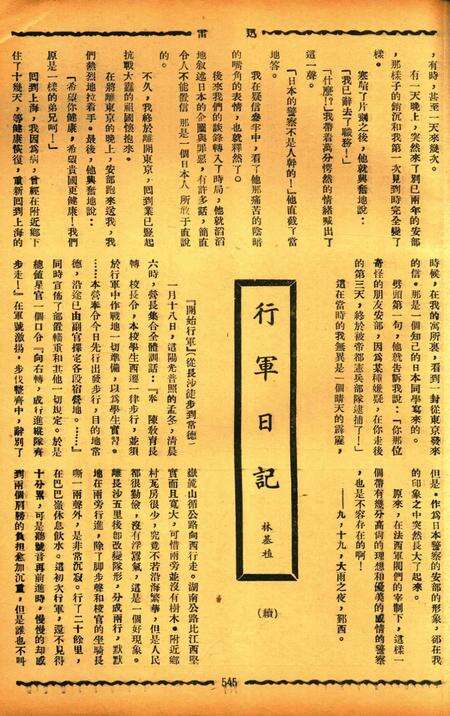 雷 迅
,有時,甚至一天來幾次。
有一天晚上,突然來了別已兩年的安部
,那樣子的銷沉和我第一次見到時完全變了
樣。
寒喧了片刻之後,他就興奮地說:
「我已辭去了職務!」
「什麼?!」我帶着萬分愕然的情緒喊出了
這一聲。
「日本的警察不是人幹的!」他直截了當
地答。
我在疑信參半中,看了他那痛苦的陰暗
的嘴角的表情,也就釋然了。
後來我們的談鋒轉入了時局,他就滔滔
地叙述日本的企圖與罪惡,有許多話,簡直
令人不能置信 那是一個日本人 所敢于直說
的。
不久,我終於離開東京,回到業已豎起
抗戰大纛的祖國懷抱來。
在將離東京的晚上,安部跑來送我,我
們熱烈地拉着手。最後,他興奮地說:
「希望你健康,希望貴國更健康!我們
原是一樣的弟兄呵!」
回到上海,我因為病,曾經在附近鄉下
住了十幾天,等健康恢復,重新回到上海的
時候,在我的寓所裏,看到一封從東京發來
的信。那是一個知己的日本同學寫來的。
劈頭第一句,他就告訴我說:「你那位
奇怪的朋友安部,因為某種嫌疑,在你走後
的第三天,終於被帝都憲兵部隊逮捕了!」
這在當時的我無異是一個晴天的霹靂,
但是。作為日本警察的安部的形象,卻在我
的印象之中突然長大了起來。
原來,在法西軍閥們的宰制下,這樣一
個帶有幾分高尚的理想和優美的感情的警察
,也是不容存在的啊!
——九,十九,大雨之夜,鄞西。
行軍日記
林基植
(續)
『開始行軍』(從長沙徒步到常德)
一月十八日,這陽光普照的孟冬,清晨
六時,營長集合全體訓話:『奉 陳教育長
轉 校長令,本校學生西遷一律步行,並須
於行軍中作戰地一切準備,以為學生實習。
……本營奉令今日先行出發步行,目的地常
德,沿途已由副官擇定各段宿營地。……』
同時宣佈了部置輜重和其他一切規定。於是
總值星官一個口令『向右轉,成行進縱隊齊
步走!』在軍號激揚,步伐整齊中,辭別了
嶽麓山循公路向西行走。湖南公路比江西堅
實而且寬大,可惜兩旁並沒有樹木。附近鄉
村瓦房很少,究竟不若沿海繁華,但是人民
都很勤儉,沒有浮囂氣,這是一個好現象。
離長沙五里後卽改變隊形,分成兩行,默默
地在兩旁行進,除了腳步聲和校官的坐騎長
嘶一兩聲外,是非常沉寂。行了二十餘里,
在巴巴嶺休息飲水。這初次行軍,還不見得
十分累,可是聽號音再前進時,慢慢的却感
到兩個肩膀的負担愈加沉重,但是誰也不叫
545